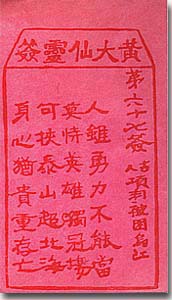 黃大仙靈簽
第六十七簽 古人 項羽被困烏江
人雖勇力不能當
莫恃英雄獨冠場
可挾泰山超北海
身心猶貴重存亡